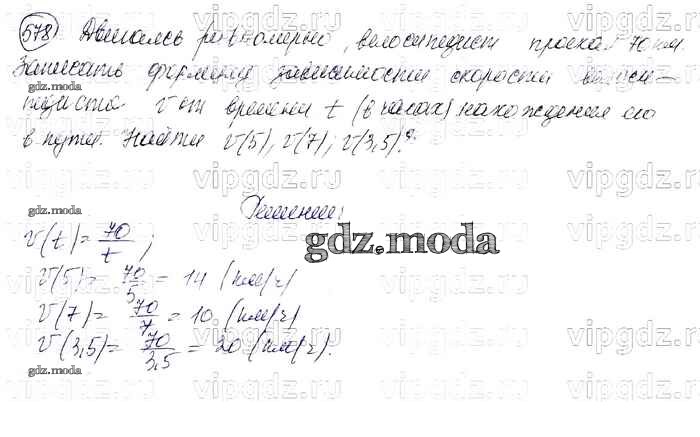 578) Двигаясь равномерно, велосипедист проехал 70 км.
Записать формулу зависимости скорости велоси-
педиста v от времени t (в часах) нахождения его
в пути. Найти v(5), v(7), v(3,5).
Решение:
v(t) = 70/t ;
v(5) = 70/5 = 14 (км/ч)
v(7) = 70/7 = 10 (км/ч)
v(3,5) = 70/3,5 = 20 (км/ч).
gdz.moda
gdz.moda
gdz.moda
gdz.moda
gdz.moda
vipgdz.ru